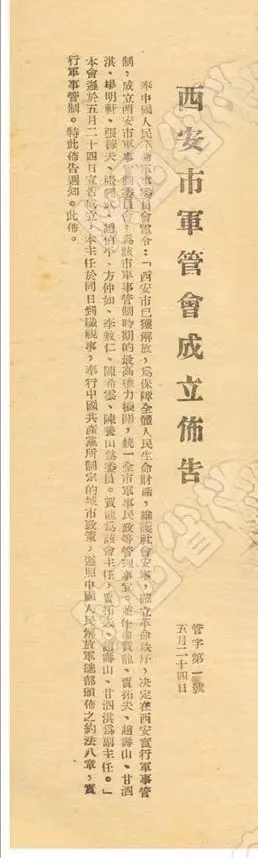 西安市軍管會成立佈告
管字第一號
五月二十四日
奉中國人民革命軍事委員會電令：「西安市已獲解放，為保障全體人民生命財產，維護社會安寧，確立革命秩序，决定在西安實行軍事管
制，成立西安市軍事管制委員會，為該市軍事管制時期的最高權力機關，統一全市軍事民政等管理事宜。並任命賀龍、賈拓夫、趙壽山、甘泗
淇、楊明軒、張 夫、張經武、趙伯平、方仲如、李敷仁、陳希雲、陳養山為委員。賀龍為該會主任，賈拓夫、趙壽山、甘泗淇為副主任。」
本會遵於五月二十四日宣告成立，本主任於同日到職視事，奉行中國共產黨所制定的城市政策，遵照中國人民解放軍總部頒佈之約法八章，實
行軍事管制。特此佈告週知。此佈。